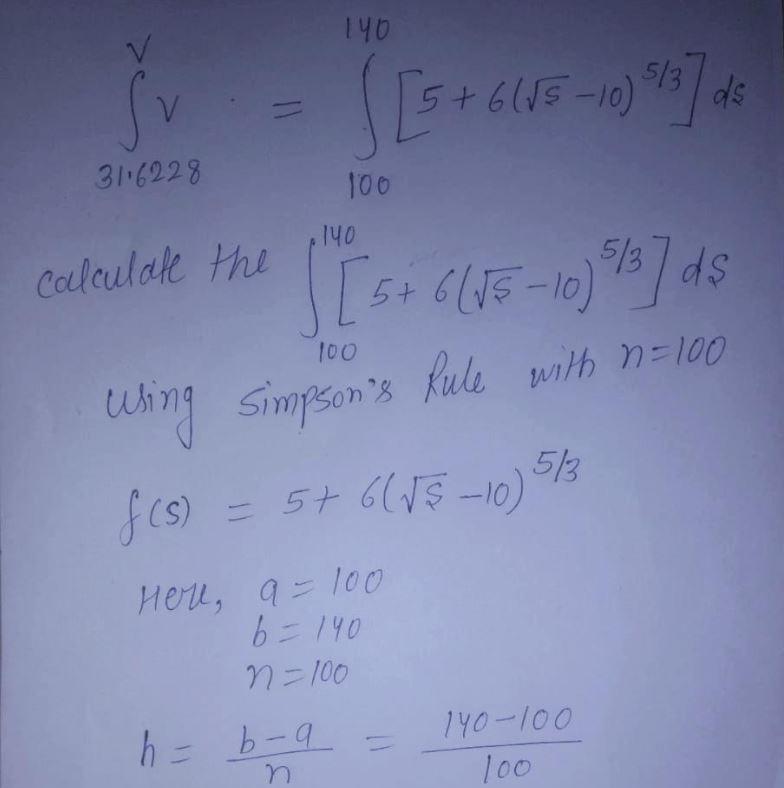 ∫_{31.6228}^{V} v = ∫_{100}^{140} [5 + 6(√s - 10)^{5/3}] ds
calculate the ∫_{100}^{140} [5 + 6(√s - 10)^{5/3}] ds
using Simpson's Rule with n=100
f(s) = 5 + 6(√s - 10)^{5/3}
Here, a = 100
b = 140
n = 100
h = \frac{b-a}{n} = \frac{140-100}{100}